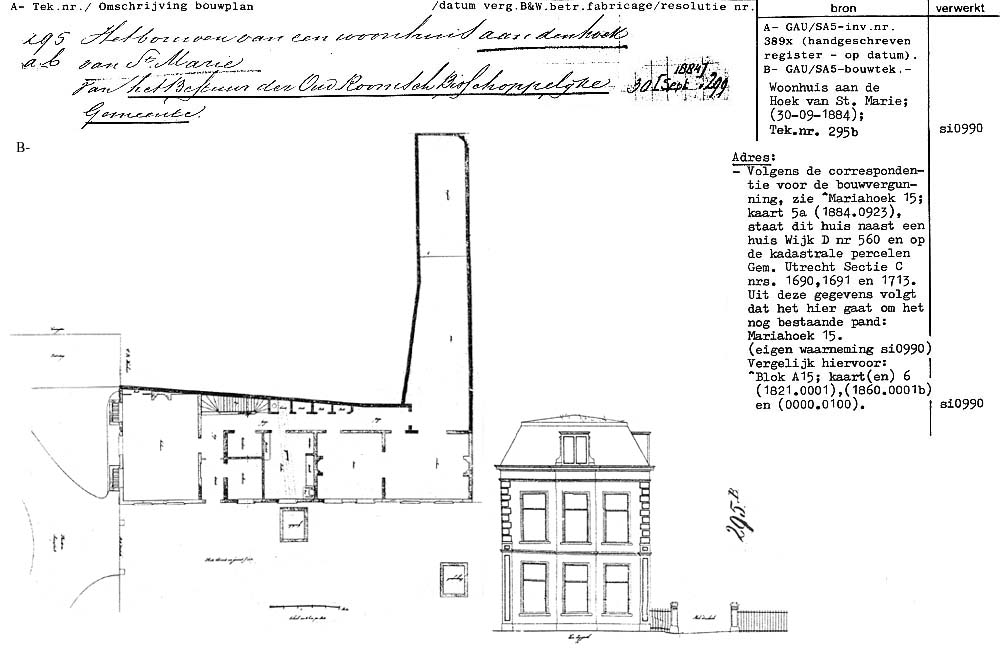 A- Tek.nr./ Omschrijving bouwplan /datum verg.B&W.betr.fabricage/resolutie nr.
bron
verwerkt
295 Het bouwen van een woonhuis aan den hoek
a.b van St. Marie
Van het Bestuur der Oud Roomsch Bisschoppelijke
Gemeente.
1884
30 Sept. 299
A- GAU/SA5-inv.nr.
389x (handgeschreven
register - op datum).
B- GAU/SA5-bouwtek.-
Woonhuis aan de
Hoek van St. Marie;
(30-09-1884);
Tek.nr. 295b
si0990
B-
Adres:
- Volgens de corresponden-
tie voor de bouwvergun-
ning, zie ^Mariahoek 15;
kaart 5a (1884.0923),
staat dit huis naast een
huis Wijk D nr 560 en op
de kadastrale percelen
Gem. Utrecht Sectie C
nrs. 1690,1691 en 1713.
Uit deze gegevens volgt
dat het hier gaat om het
nog bestaande pand:
Mariahoek 15.
(eigen waarneming si0990)
Vergelijk hiervoor:
^Blok A15; kaart(en) 6
(1821.0001),(1860.0001b)
en (0000.0100).
si0990
295.B